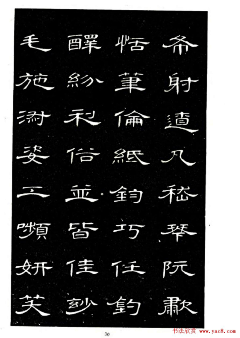 布射遼丸嵇琴阮歗
恬筆倫紙鈞巧任釣
釋紛利俗並皆佳妙
毛施淑姿工嚬妍笑
书法欣赏 www.yac8.com